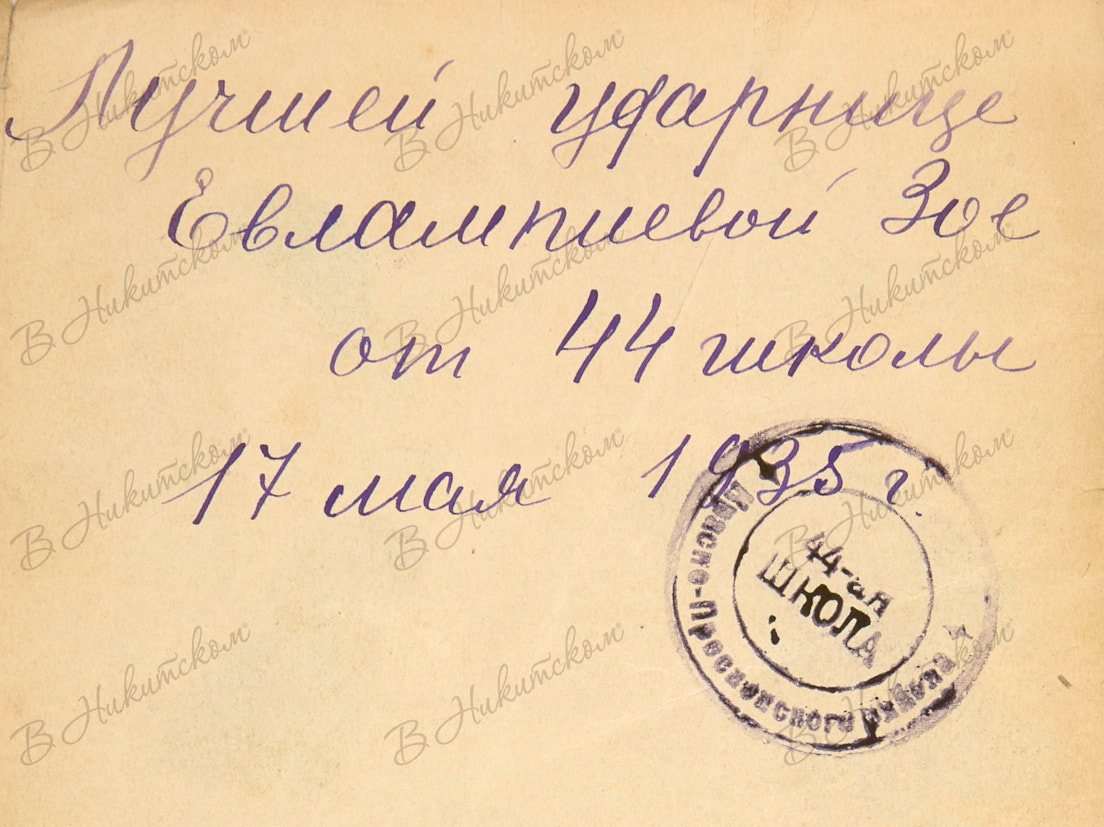 Лучшей ударнице
Евлампиевой Зое
от 44 школы
17 мая 1935 г.
44-ая
ШКОЛА
Красно-Пресненского района
В Никитском